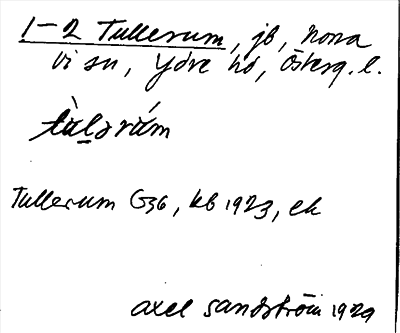 1-2 Tullerum, jb, Norra
Vi sn, Ydre hd, Österg. l.
tùlərúm
Tullerum G36, kb 1923, ek
Axel Sandström 1929